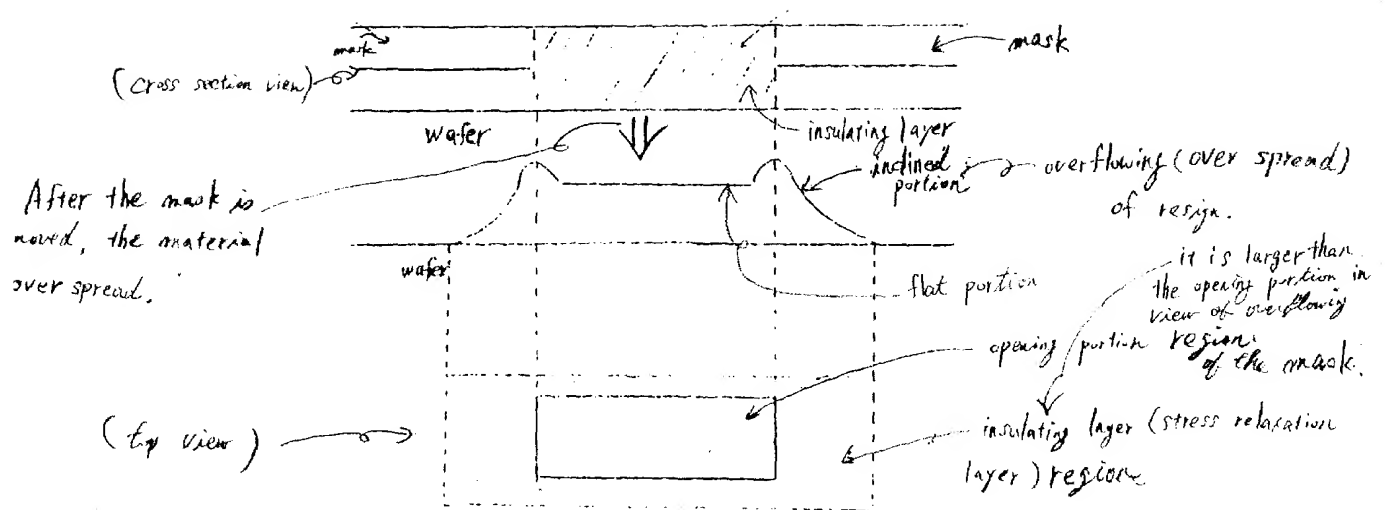 mask
mask
(cross section view)
wafer
insulating layer
inclined
portion
overflowing (over spread)
of resign.
After the mask is
moved, the material
over spread.
wafer
flat portion
it is larger than
the opening portion in
view of overflowing
region.
opening portion
of the mask.
(top view)
insulating layer (stress relaxation
layer) region